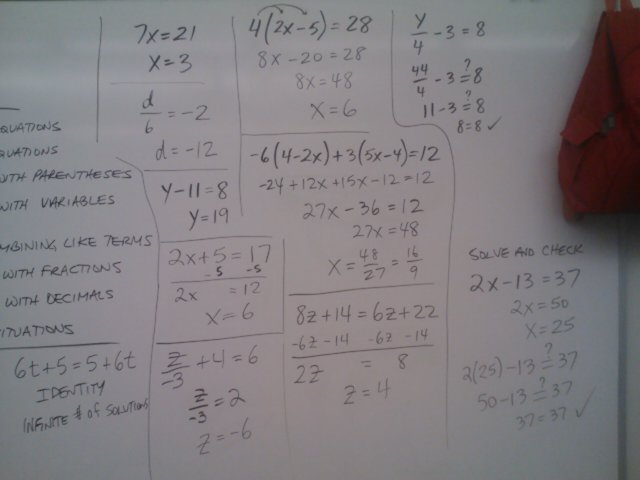 QUATIONS
QUATIONS
WITH PARENTHESES
WITH VARIABLES
MBINING LIKE TERMS
WITH FRACTIONS
WITH DECIMALS
ITUATIONS
6t+5=5+6t
IDENTITY
INFINITE # of SOLUTIONS
7x=21
x=3
d/6=-2
d=-12
y-11=8
y=19
2x+5=17
-5 -5
2x =12
x=6
z/-3+4=6
z/-3=2
z=-6
4(2x-5)=28
8x-20=28
8x=48
x=6
-6(4-2x)+3(5x-4)=12
-24+12x+15x-12=12
27x-36=12
27x=48
x=48/27=16/9
8z+14=6z+22
-6z-14 -6z-14
2z = 8
z=4
y/4-3=8
44/4-3≟8
11-3≟8
8=8✓
SOLVE AND CHECK
2x-13=37
2x=50
x=25
2(25)-13≟37
50-13≟37
37=37✓